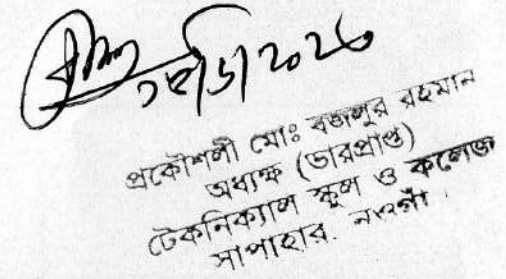 প্রকৌশলী মোঃ বজলুর রহমান
অধ্যক্ষ (ভারপ্রাপ্ত)
টেকনিক্যাল স্কুল ও কলেজ
সাপাহার, নওগাঁ।